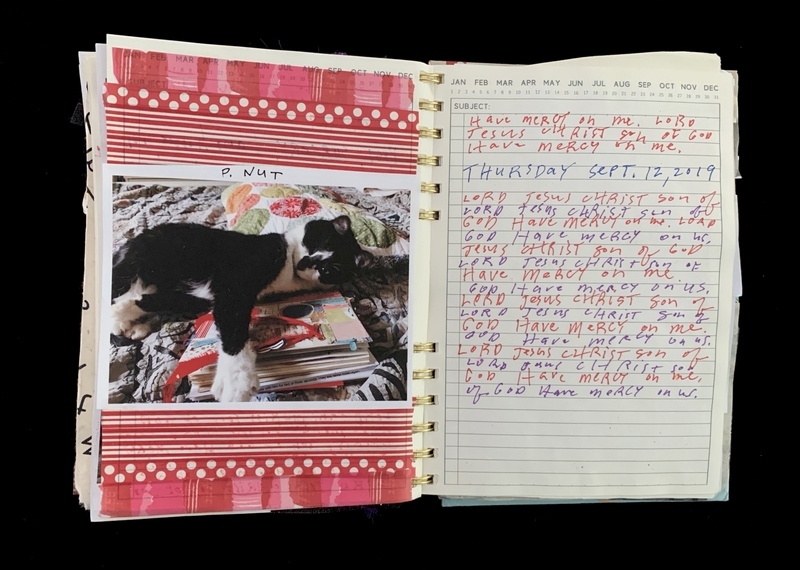 JAN FEB MAR APR MAY JUN JUL AUG SEP OCT NOV DEC
P. NUT
JAN FEB MAR APR MAY JUN JUL AUG SEP OCT NOV DEC
1 2 3 4 5 6 7 8 9 10 11 12 13 14 15 16 17 18 19 20 21 22 23 24 25 26 27 28 29 30 31
SUBJECT:
Have mercy on me. LORD
Jesus CHRIST son of GOD
Have mercy on me.
THURSDAY SEPT. 12, 2019
LORD Jesus CHRIST son of
LORD Jesus CHRIST son of
GOD Have mercy on me. LORD
GOD Have mercy on us.
Jesus CHRIST son of GOD
LORD Jesus CHRIST son of
Have mercy on me.
GOD Have mercy on us.
LORD Jesus CHRIST son of
LORD Jesus CHRIST son of
GOD Have mercy on me.
GOD Have mercy on us.
LORD Jesus CHRIST son of
LORD Jesus CHRIST son
GOD Have mercy on me.
of GOD Have mercy on us.